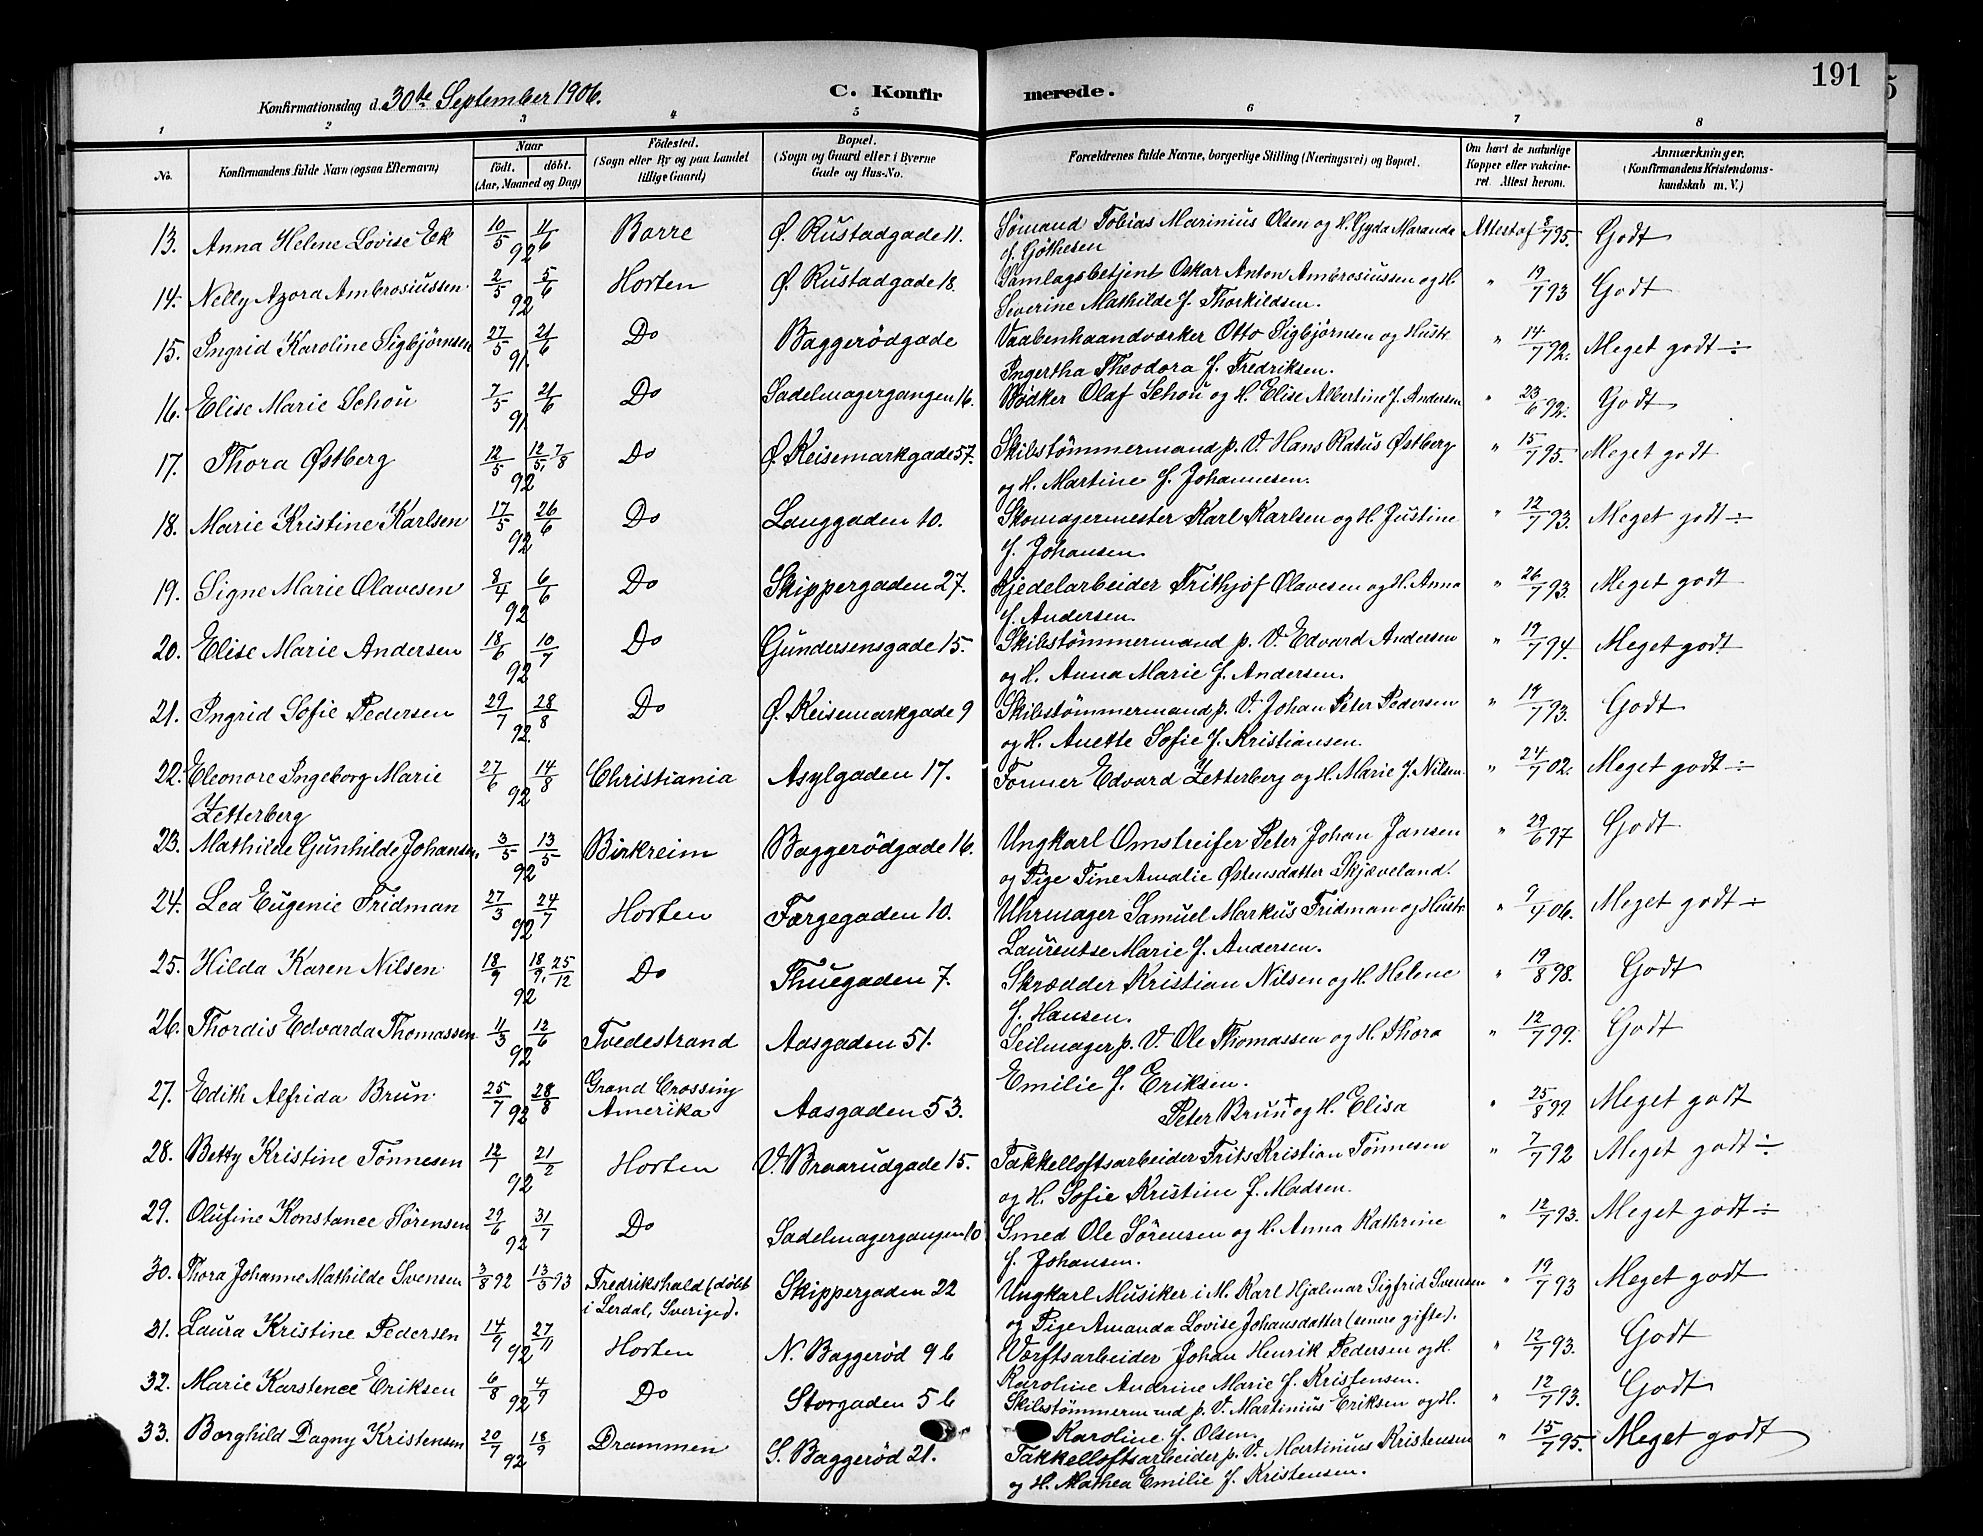 191
Konfirmationsdag d. 30te September 1906.
C. Konfirmerede.
1 2 3 4 5 6 7 8
No.
Konfirmandens fulde Navn (ogsaa Efternavn)
Naar
födt. döbt.
(Aar, Maaned og Dag)
Födested.
(Sogn eller By og paa Landet
tillige Gaard)
Bopæl.
(Sogn og Gaard eller i Byerne
Gade og Hus-No.
Forældrenes fulde Navne, borgerlige Stilling (Næringsvei) og Bopæl.
Om havt de naturlige
Kopper eller vakcine-
ret. Attest herom.
Anmærkninger.
(Konfirmandens Kristendoms-
kundskab m. V.)
13. Anna Helene Lovise Ek 10/5 92 11/6 Borre Ø. Rustadgade 11. Sømand Tobias Marinius Olsen og H. Gyda Marande Attest af 8/7 95. Godt
f. Gøthesen
14. Nelly Azora Ambrosiussen 2/5 92 5/6 Horten Ø. Rustadgade 18. Samlagsbetjent Oskar Anton Ambrosiussen og H. " 19/7 93 Godt
Severine Mathilde f. Thorkildsen.
15. Ingrid Karoline Sigbjørnsen 27/5 91. 21/6 Do Baggerödgade Vaabenhaandværker Otto Sigbjørnsen og Hustr. " 14/7 92. Meget godt ÷
Ingertha Theodora f. Fredriksen.
16. Elise Marie Schou 7/5 91. 21/6 Do Sadelmagergangen 16. Bødker Olaf Schou og H. Elise Albertine f. Andersen " 23/6 92. Godt
17. Thora Østberg 12/5 92 12/5, 7/8 Do Ø. Keisemarkgade 57. Skibstömmermand p. V. Hans Ratus Østberg " 15/7 95. Meget godt
og H. Martine f. Johannesen.
18. Marie Kristine Karlsen 17/5 92 26/6 Do Langgaden 10. Skomagermester Karl Karlsen og H. Justine " 12/7 93. Meget godt ÷
f. Johansen.
19. Signe Marie Olavesen 8/4 92 6/6 Do Skippergaden 27. Kjedelarbeider Frithjof Olavesen og H. Anna " 26/7 93. Meget godt
f. Andersen.
20. Elise Marie Andersen 18/6 92 10/7 Do Gundersensgade 15. Skibstömmermand p. V. Edvard Andersen " 19/7 94. Meget godt
og H. Anna Marie f. Andersen.
21. Ingrid Sofie Pedersen 29/7 92. 28/8 Do Ø. Keisemarkgade 9 Skibstömmermand p. V. Johan Peter Pedersen " 19/7 93. Godt
og H. Anette Sofie f. Kristiansen.
22. Eleonore Ingeborg Marie 27/6 92 14/8 Christiania Asylgaden 17. Former Edvard Zetterberg og H. Marie f. Nilsen " 24/7 02. Meget godt ÷
Zetterberg
23. Mathilde Gunhilde Johansen. 3/5 92 13/5 Birkreim Baggerödgade 16. Ungkarl Omstreifer Peter Johan Jansen " 29/6 97 Godt
og Pige Tine Amalie Østensdatter Skjæveland.
24. Lea Eugenie Fridman 27/3 92 24/7 Horten Færgegaden 10. Uhrmager Samuel Markus Fridman og Hustr. " 9/4 06. Meget godt ÷
Laurentse Marie f. Andersen.
25. Hilda Karen Nilsen 18/9 92 18/9, 25/12 Do Thuegaden 7. Skrædder Kristian Nilsen og H. Helene " 19/8 98. Godt
f. Hansen.
26. Thordis Edvarda Thomassen 11/3 92 12/6 Tvedestrand Aasgaden 51. Seilmager p. V. Ole Thomassen og H. Thora " 12/7 99. Godt
Emilie f. Eriksen.
27. Edith Alfrida Brun 25/7 92 28/8 Grand Crossing Amerika Aasgaden 53. Peter Brun + og H. Elisa " 25/8 99 Meget godt
28. Betty Kristine Tönnesen 12/7 92 21/2 Horten V. Braarudgade 15. Takkelloftsarbeider Frits Kristian Tönnesen " 7/7 92 Meget godt ÷
og H. Sofie Kristine f. Madsen.
29. Olufine Konstance Sörensen 29/6 92 31/7 Do Sadelmagergangen 10 Smed Ole Sörensen og H. Anna Kathrine " 12/7 93. Meget godt ÷
f. Johansen.
30. Thora Johanne Mathilde Svensen 3/8 92 13/5 93 Fredrikshald (döbt Skippergaden 22 Ungkarl Musiker i M. Karl Hjalmar Sigfrid Svensen " 19/7 93 Meget godt
i Lerdal, Sverige). og Pige Amanda Lovise Johansdatter (senere gifte).
31. Laura Kristine Pedersen 14/9 92 27/11 Horten N. Baggeröd 9 b Værftsarbeider Johan Henrik Pedersen og H. " 12/7 93. Godt
Karoline Andrine Marie f. Kristensen.
32. Marie Karstence Eriksen 6/8 92 4/9 Do Storgaden 5 b Skibstömmermand p. V. Martinius Eriksen og H. " 12/7 93. Godt
Karoline f. Olsen.
33. Borghild Dagny Kristensen 20/7 92 18/9 Drammen S. Baggeröd 21. Takkelloftsarbeider p. V. Martinius Kristensen " 15/7 95. Meget godt
og H. Mathea Emilie f. Kristensen.